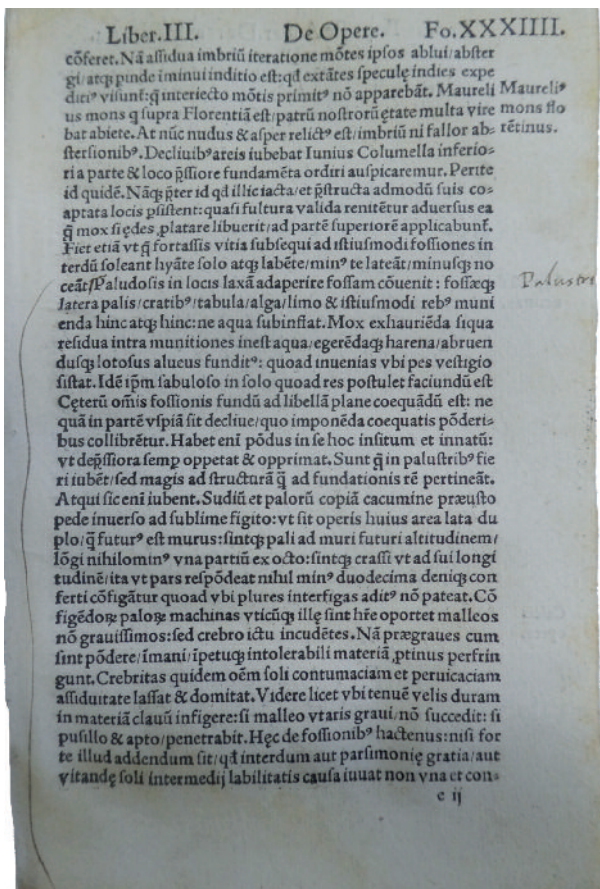 Liber.III. De Opere. Fo.XXXIIII.
cõferet. Nã assidua imbriũ iteratione mõtes ipsos ablui/abster
gi/atqꝫ pinde iminui inditio est: qđ extãtes speculę indies expe
ditiꝰ visunt: q̃ interiecto mõtis primitꝰ nõ apparebãt. Maureli
us mons q supra Florentiã est/patrũ nostrorũ ętate multa vire
bat abiete. At nũc nudus & asper relictꝰ est/imbriũ ni fallor ab⸗
stersionibꝰ. Decliuibꝰ areis iubebat Iunius Columella inferio⸗
ri a parte & loco p̃ssiore fundamẽta ordiri auspicaremur. Perite
id quidẽ. Nãqꝫ p̃ter id qđ illic iacta/et p̃structa admodũ suis co⸗
aptata locis ꝑsistent: quasi fultura valida renitẽtur aduersus ea
q̃ mox si ędes ꝓlatare libuerit/ad partẽ superiorẽ applicabunť.
Fiet etiã vt q̃ fortassis vitia subsequi ad istiusmodi fossiones in
terdũ soleant hyãte solo atqꝫ labẽte/minꝰ te lateãt/minusqꝫ no
ceãt/Paludosis in locis laxã adaperire fossam cõuenit: fossęqꝫ
latera palis/cratibꝰ/tabula/alga/limo & istiusmodi rebꝰ muni
enda hinc atqꝫ hinc: ne aqua subinflat. Mox exhauriẽda siqua
residua intra munitiones inest aqua/egerẽdaqꝫ harena/abruen
dusqꝫ lotosus alueus funditꝰ: quoad inuenias vbi pes vestigio
sistat. Idẽ ip̃m sabuloso in solo quoad res postulet faciundũ est
Cęterũ om̃is fossionis fundũ ad libellã plane coequãdũ est: ne
quã in partẽ vspiã sit decliue/quo imponẽda coequatis põderi⸗
bus collibrẽtur. Habet eni põdus in se hoc insitum et innatũ:
vt dep̃ssiora semꝑ oppetat & opprimat. Sunt q̃ in palustribꝰ fie
ri iubẽt/sed magis ad structurã q̃ ad fundationis rẽ pertineãt.
Atqui sic eni iubent. Sudiũ et palorũ copiã cacumine præusto
pede inuerso ad sublime figito: vt sit operis huius area lata du
plo/q̃ futurꝰ est murus: sintqꝫ pali ad muri futuri altitudinem/
lõgi nihilominꝰ vna partiũ ex octo: sintqꝫ crassi vt ad sui longi
tudinẽ/ita vt pars respõdeat nihil minꝰ duodecima deniqꝫ con
ferti cõfigãtur quoad vbi plures interfigas aditꝰ nõ pateat. Cõ
figẽdoꝝ paloꝝ machinas vticũqꝫ illę sint hr̃e oportet malleos
nõ grauissimos: sed crebro ictu incudẽtes. Nã prægraues cum
sint põdere/ĩmani/ĩpetuqꝫ intolerabili materiã ꝓtinus perfrin
gunt. Crebritas quidem oẽm soli contumaciam et peruicaciam
assiduitate lassat & domitat. Videre licet vbi tenuẽ velis duram
in materiã clauũ infigere: si malleo vtaris graui/nõ succedit: si
pusillo & apto/penetrabit. Hęc de fossionibꝰ hactenus: nisi for
te illud addendum sit/qđ interdum aut parsimonię gratia/aut
vitandę soli intermedij labilitatis causa iuuat non vna et con⸗
e ij
Maureliꝰ
mons flo
rẽtinus.
Palustri